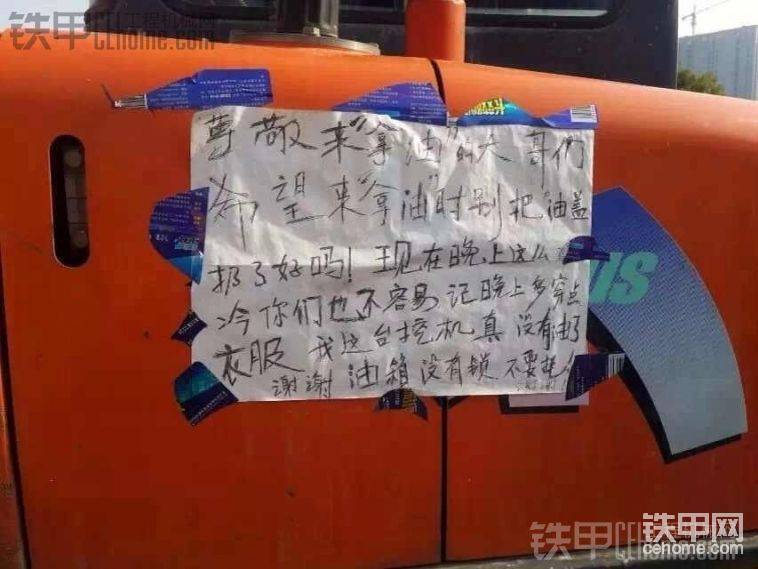 铁甲工程机械网
cehome.com
尊敬来"拿油"的大哥们
希望来"拿油"时别把油盖
扔了好吗！现在晚上这么
冷你们也不容易记晚上多穿点
衣服 我这台挖机真没有油了
谢谢 油箱没有锁 不要撬
US
铁甲网
cehome.com